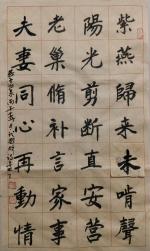 紫燕歸来未啼聲
陽光剪断直安营
老巢脩补言家事
夫妻同心再動情